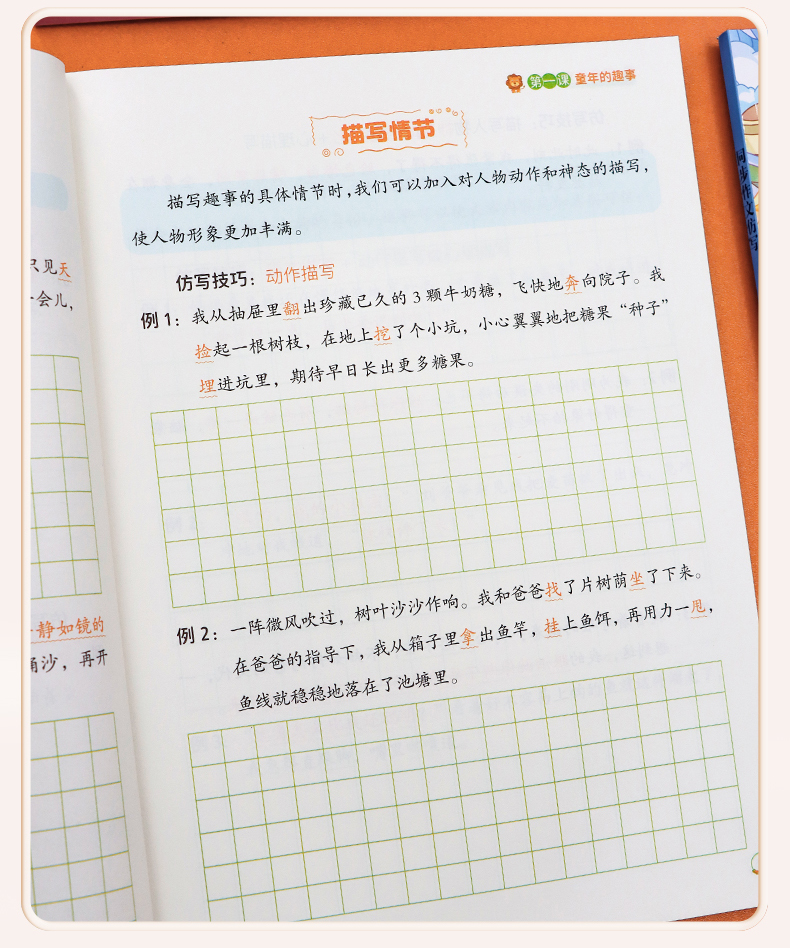 第一课 童年的趣事
描写情节
描写趣事的具体情节时,我们可以加入对人物动作和神态的描写,
使人物形象更加丰满。
仿写技巧：动作描写
例1：我从抽屉里翻出珍藏已久的 3 颗牛奶糖，飞快地奔向院子。我
捡起一根树枝，在地上挖了个小坑，小心翼翼地把糖果“种子”
埋进坑里，期待早日长出更多糖果。
例2：一阵微风吹过，树叶沙沙作响。我和爸爸找了片树荫坐了下来。
在爸爸的指导下，我从箱子里拿出鱼竿，挂上鱼饵，再用力一甩，
鱼线就稳稳地落在了池塘里。
只见天
会儿，
静如镜的
沙，再开
同步作文仿写